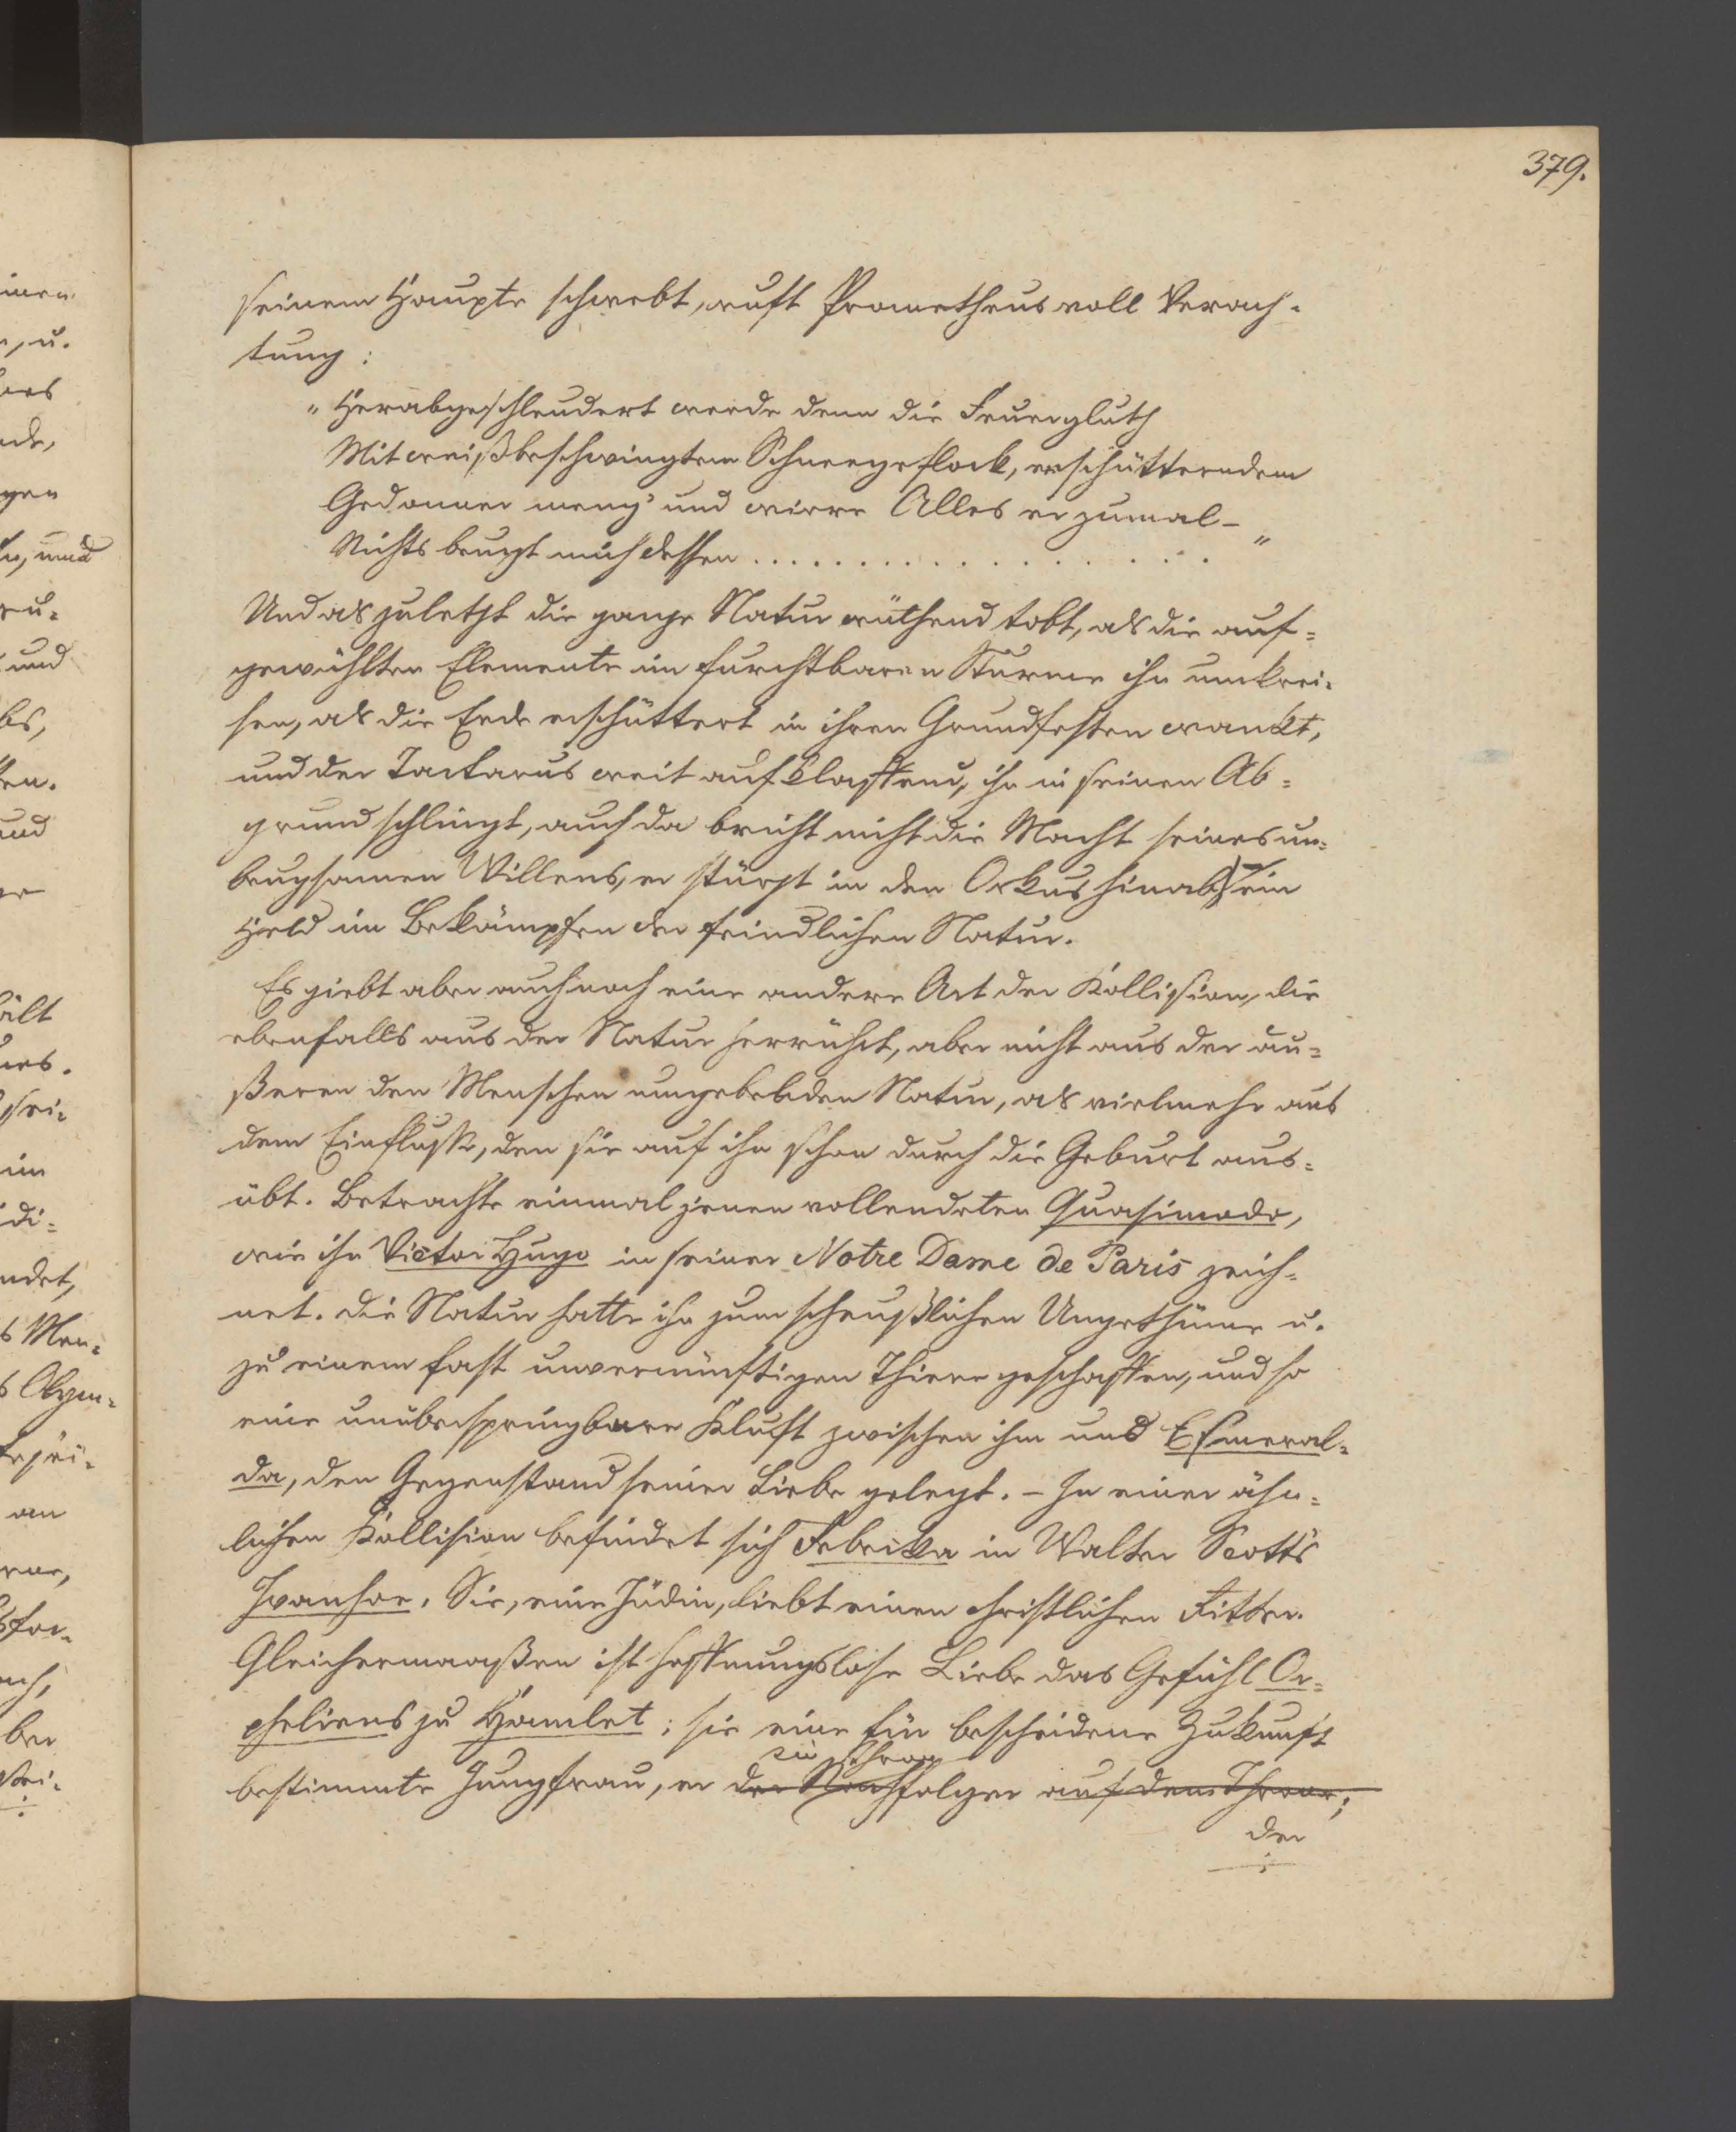 379.
seinem Haupte schwebt, ruft Prometheus voll Verach-
tung:
„Herabgeschleudert werde denn die Feuergluth
Mit weißbeschwingtem Schneegeflock, erschütterndem
Gedonner meng' und wirre Alles er zumal –
Nichts beugt mich dessen . . . . . . . . . . . . . . . . . "
Und als zuletzt die ganze Natur wüthend tobt, als die auf-
gewühlten Elemente im furchtbaren Sturme ihn umkrei-
sen, als die Erde erschüttert in ihren Grundfesten wankt,
und der Tartarus weit aufklaffend, ihn in seinen Ab-
grund schlingt, auch da bricht nicht die Macht seines un-
beugsamen Willens, er stürzt in den Orkus hinab, ein
Held im Bekämpfen der feindlichen Natur.
Es giebt aber auch noch eine andere Art der Kollision, die
ebenfalls aus der Natur herrührt, aber nicht aus der äu-
ßeren den Menschen umgebenden Natur, als vielmehr aus
dem Einflusse, den sie auf ihn schon durch die Geburt aus-
übt. Betrachte einmal jenen vollendeten Quasimodo,
wie ihn Victor Hugo in seiner Notre Dame de Paris zeich-
net. Die Natur hatte ihn zum scheußlichen Ungethüme u.
zu einem fast unvernünftigen Thiere geschaffen, und so
eine unüberspringbare Kluft zwischen ihm und Esmeral-
da, den Gegenstand seiner Liebe gelegt. – In einer ähn-
lichen Kollision befindet sich Rebekka in Walter Scott's
Ivanhoe. Sie, eine Jüdin, liebt einen christlichen Ritter.
Gleichermaaßen ist hoffnungslose Liebe das Gefühl Or-
pheliens zu Hamlet; sie eine für bescheidene Zukunft
bestimmte Jungfrau, er der Nachfolger auf dem Throne;
ein Thron
der